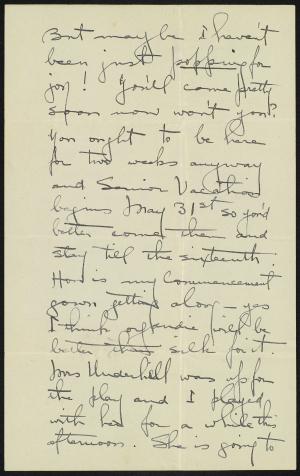 But maybe I haven't
been just popping for
joy! You'll come pretty
spoon now won't you?
You ought to be here
for two weeks anyway
and Senior Vacation
begins May 31st so you'd
better come then and
stay till the sixteenth.
How is my Commencement
gown getting along – yes
I think organdie will be
better than silk for it.
Mrs Underhill was up for
the play and I played
with her for a while this
afternoon. She is going to